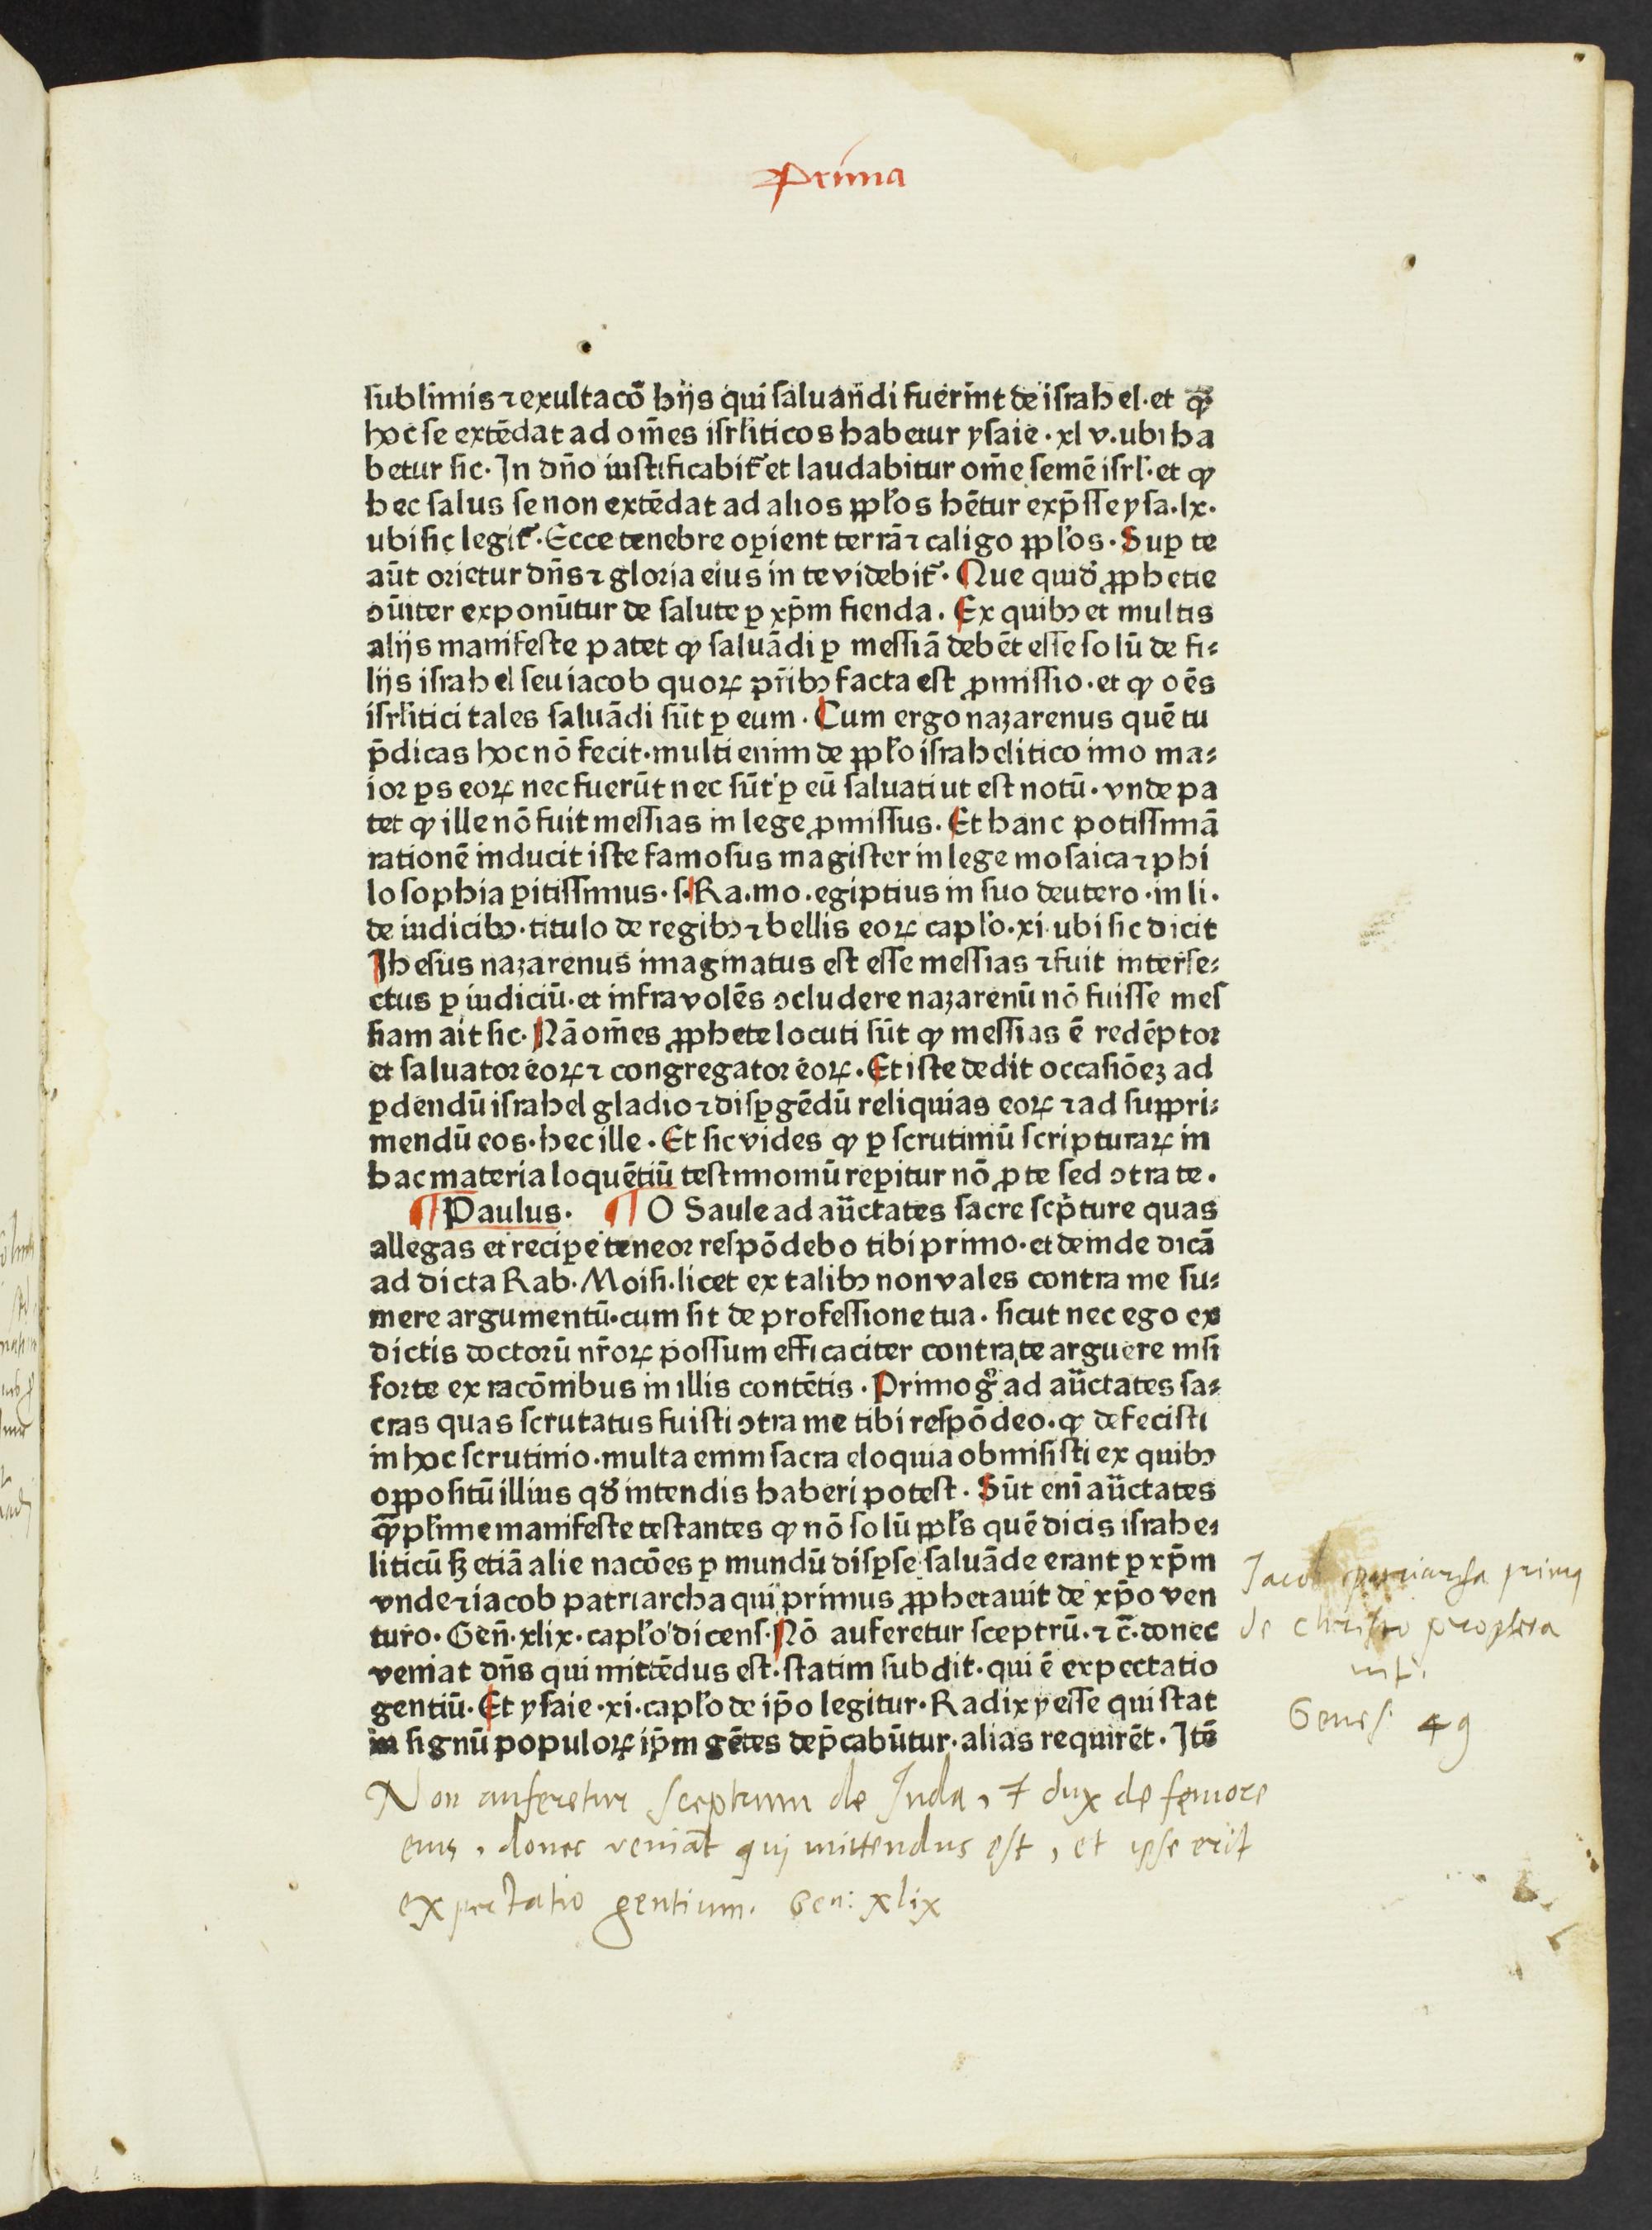 Prima
sublimis ⁊ exultacō hijs qui ſaluandi fuerint de iſrahel · et ꝙ
hoc ſe extēdat ad om̄es iſrl̓iticos habetur yſaie · xl v · ubi ha
betur ſic · In dn̄o iuſtificabit᷑ et laudabitur om̄e ſemē iſrl̓ · et ꝙ
hec ſalus ſe non extēdat ad alios ppl̓os hētur exp̄ſſe yſa · lx ·
ubi ſic legit᷑ · Ecce tenebre oꝑient terrā ⁊ caligo ppl̓os · Suꝑ te
aūt orietur dn̄s ⁊ gloria eius in te videbit᷑ · Que quid̓ ꝓphetie
ↄūiter exponūtur de ſalute ꝑ xp̄m fienda · Ex quibꝰ et multis
alijs manifeſte patet ꝙ ſaluādi ꝑ meſſiā debēt eſſe ſolū de fi⸗
lijs iſrahel ſeu iacob quoꝝ pr̄ibꝰ facta eſt ꝓmiſſio · et ꝙ oēs
iſrl̓itici tales ſaluādi ſūt ꝑ eum · Cum ergo nazarenus quē tu
p̄dicas hoc nō fecit · multi enim de ppl̓o iſrahelitico imo ma⸗
ior ꝑs eoꝝ nec fuerūt nec ſūt ꝑ eū ſaluati ut eſt notū · vnde pa
tet ꝙ ille nō fuit meſſias in lege ꝓmiſſus · Et hanc potiſſimā
rationē inducit iſte famoſus magiſter in lege moſaica ⁊ phi
loſophia ꝑitiſſimus · ſ · Ra · mo · egiptius in ſuo deutero · in li ·
de iudicibꝰ · titulo de regibꝰ ⁊ bellis eoꝝ capl̓o · xi · ubi ſic dicit
Iheſus nazarenus imaginatus eſt eſſe meſſias ⁊ fuit interfe⸗
ctus ꝑ iudiciū · et infra volēs ↄcludere nazarenū nō fuiſſe meſ
ſiam ait ſic · Nā om̄es ꝓphete locuti ſūt ꝙ meſſias ē redēptor
et ſaluator eoꝝ ⁊ congregator eoꝝ · Et iſte dedit occaſiōeꝫ ad
ꝑdendū iſrahel gladio ⁊ diſꝑgēdū reliquias eoꝝ ⁊ ad ſuppri⸗
mendū eos · hec ille · Et ſic vides ꝙ ꝑ ſcrutiniū ſcripturaꝝ in
hac materia loquētiū teſtimoniū reꝑitur nō ꝓ te ſed ↄtra te ·
¶ Paulus · ¶ O Saule ad aūctates ſacre ſcp̄ture quas
allegas et reciꝑe teneor reſpōdebo tibi primo · et deinde dicā
ad dicta Rab · Moiſi · licet ex talibꝰ non vales contra me ſu⸗
mere argumentū · cum ſit de profeſſione tua · ſicut nec ego ex
dictis doctorū nr̄oꝝ poſſum efficaciter contra te arguere niſi
forte ex racōnibus in illis contētis · Primo gͦ ad aūctates ſa⸗
cras quas ſcrutatus fuiſti ↄtra me tibi reſpōdeo · ꝙ defeciſti
in hoc ſcrutinio · multa enim ſacra eloquia obmiſiſti ex quibꝰ
oppoſitū illius qd̓ intendis haberi poteſt · Sūt enī aūctates
ꝙ̄pl̓ime manifeſte teſtantes ꝙ nō ſolū ppl̓s quē dicis iſrahe⸗
liticū ſꝫ etiā alie nacōes ꝑ mundū diſꝑſe ſaluāde erant ꝑ xp̄m
vnde ⁊ iacob patriarcha qui primus ꝓphetauit de xp̄o ven
turo · Gen̄ · xlix · capl̓o dicenſ · Nō auferetur ſceptrū · ⁊ c̄ · donec
veniat dn̄s qui mittēdus eſt · ſtatim ſubdit · qui ē expectatio
gentiū · Et yſaie · xi · capl̓o de ip̄o legitur · Radix yeſſe qui ſtat
in ſignū populoꝝ ip̄m gētes dep̄cabūtur · alias requirēt · Itē
Jacob patriarcha primꝰ
de christo propheta
uit.
Genes. 49
Non auferetur sceptrum de Juda, & dux de femore
eius, donec veniat qui mittendus est, et ipse erit
expectatio gentium. Gen: xlix